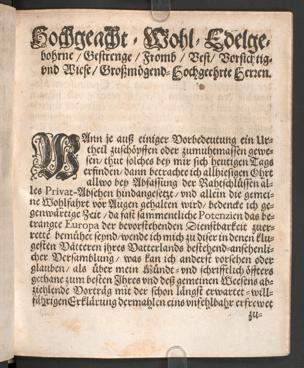 Hochgeacht-Wohl-Edelge-
bohrne / Gestrenge / Fromb / Vest / Vorsichtig-
vnd Wiese / Großmögend-Hochgeehrte Herren.
WAnn je auß einiger Vorbedeutung ein Ur-
theil zuschöpffen oder zumuthemassen gewe-
sen / thut solches bey mir sich heutigen Tags
erfinden / dann betrachte ich allhiesigen Ohrt
allwo bey Abfassung der Rahtschlüssen al-
les Privat-Absehen hindangesetzt / vnd allein die gemei-
ne Wohlfahrt vor Augen gehalten wird / bedencke ich ge-
genwärtige Zeit / da fast sammentliche Potenzien das be-
trangte Europa der bevorstehenden Dienstbarkeit zuer-
rette bemühet seynd / wende ich mich zu diser in denen klu-
gesten Vätteren ihres Vatterlands bestehend-ansehenli-
cher Versamblung / was kan ich anderst vorsehen oder
glauben / als über mein Münd- vnd schrifftlich öffters
gethane zum besten Ihres vnd deß gemeinen Wesens ab-
zihlende Vorträg mit der schon längst erwartet-will-
fährigen Erklärung dermahlen eins vnfehlbahr erfrewet
zu-